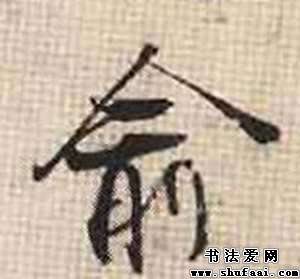 俞
书法爱网
www.shufaai.com